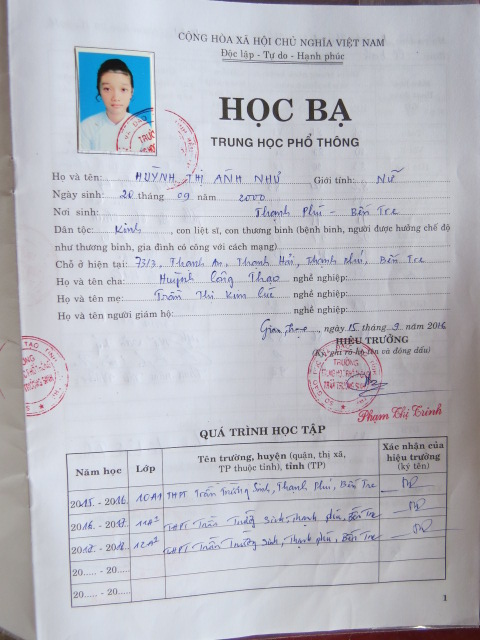 CỘNG HÒA XÃ HỘI CHỦ NGHĨA VIỆT NAM
Độc lập - Tự do - Hạnh phúc
HỌC BẠ
TRUNG HỌC PHỔ THÔNG
Họ và tên: HUỲNH THỊ ANH NHƯ Giới tính: Nữ
Ngày sinh: 20 tháng 09 năm 2000
Nơi sinh Thạnh Phú - Bến Tre
Dân tộc: Kinh, con liệt sĩ, con thương binh (bệnh binh, người được hưởng chế độ
như thương binh, gia đình có công với cách mạng)
Chỗ ở hiện tại: 73/3, Thạnh An, Thạnh Hải, Thạnh Phú, Bến Tre
Họ và tên cha: Huỳnh Công Thạo nghề nghiệp:
Họ và tên mẹ: Trần Thị Kim Cúc nghề nghiệp:
Họ và tên người giám hộ: nghề nghiệp:
Giao Thạnh, ngày 15 tháng 9 năm 2016
HIỆU TRƯỞNG
(Ký, ghi rõ họ tên và đóng dấu)
TRƯỜNG
TRUNG HỌC PHỔ THÔNG
TRẦN TRƯỜNG SINH
Phạm Thị Trinh
QUÁ TRÌNH HỌC TẬP
Năm học Lớp Tên trường, huyện (quận, thị xã, TP thuộc tỉnh), tỉnh (TP) Xác nhận của hiệu trưởng (ký tên)
2015 - 2016 10A1 THPT Trần Trường Sinh, Thạnh Phú, Bến Tre
2016 - 2017 11A1 THPT Trần Trường Sinh, Thạnh phú, Bến Tre
2017 - 2018 12A1 THPT Trần Trường Sinh, Thạnh phú, Bến Tre
20..... - 20.....
20..... - 20.....
1